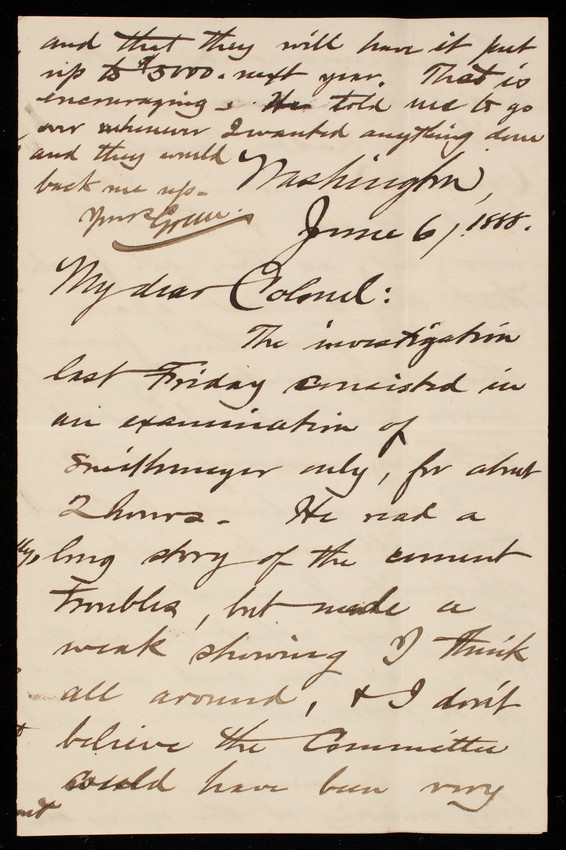 and that they will have it put
up to $5000. next year. That is
encouraging. He told me to go
over whenever I wanted anything done
and they would
back me up.
Yours Green.
Washington,
June 6, 1888.
My dear Colonel:
The investigation
last Friday consisted in
an examination of
Smithmeyer only, for about
2 hours. He read a
long story of the cement
troubles, but made a
weak showing I think
all around, & I don't
believe the Committee
could have been very